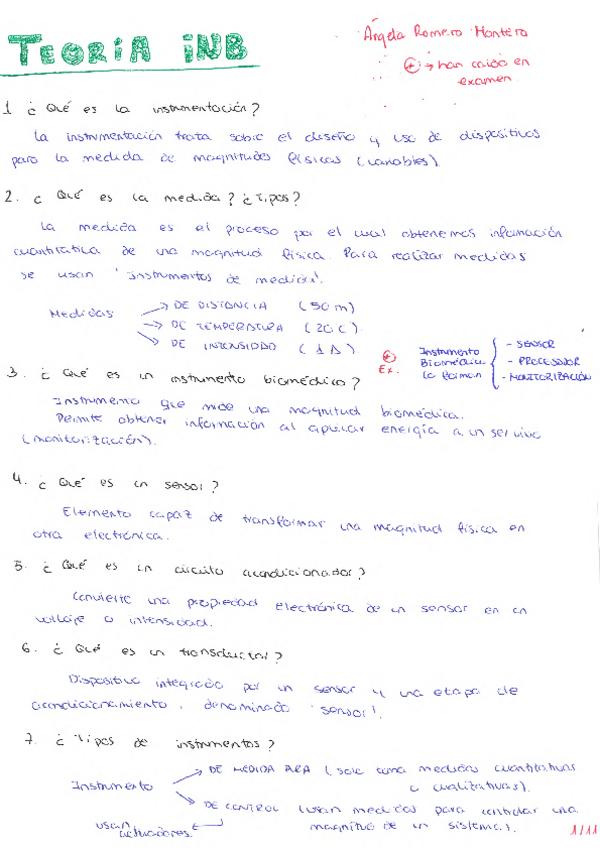 TEORÍA iNB
Ángela Romero Montero
* → han caido en
examen
1 ¿ Qué es la instrumentación?
La instrumentación trata sobre el diseño y uso de dispositivos
para la medida de magnitudes físicas (variables).
2. ¿ Qué es la medida? ¿Tipos?
La medida es el proceso por el cual obtenemos información
cuantitativa de una magnitud física. Para realizar medidas
se usan 'Instrumentos de medida'.
Medidas → DE DISTANCIA (50m)
→ DE TEMPERATURA (20C).
→ DE INTENSIDAD (1A).
* Ex. Instrumento Biomédico lo forman { - SENSOR
- PROCESADOR
- MONITORIZACIÓN
3. ¿ Qué es un instrumento biomédico?
Instrumento que mide una magnitud biomédica.
Permite obtener información al aplicar energía a un ser vivo
(monitorización).
4. ¿ Qué es un sensor?
Elemento capaz de transformar una magnitud física en
otra electrónica.
5. ¿ Qué es un circuito acondicionador?
Convierte una propiedad electrónica de un sensor en un
voltaje o intensidad.
6. ¿ Qué es un transductor?
Dispositivo integrado por un sensor y una etapa de
acondicionamiento, denominado 'sensor'.
7. ¿ Tipos de instrumentos?
Instrumento → DE MEDIDA PARA (solo toma medidas cuantitativas
o cualitativas).
→ DE CONTROL (usan medidas para controlar una
magnitud de un sistema).
usan actuadores.
1/11